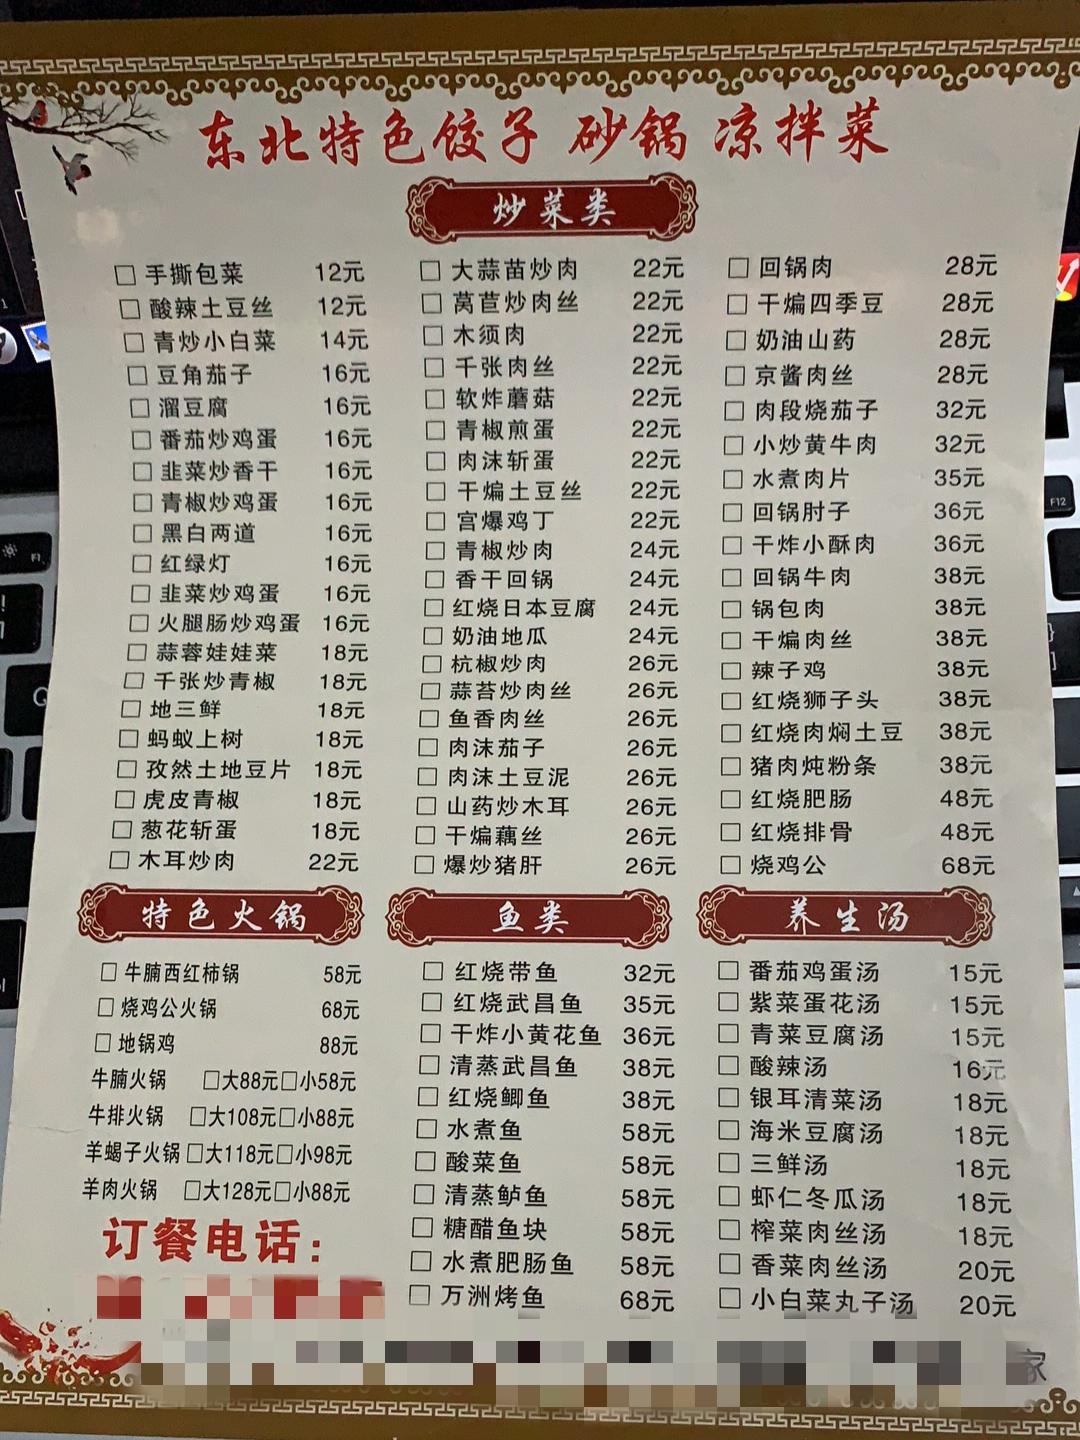 东北特色饺子 砂锅 凉拌菜
炒菜类
手撕包菜 12元
酸辣土豆丝 12元
青炒小白菜 14元
豆角茄子 16元
溜豆腐 16元
番茄炒鸡蛋 16元
韭菜炒香干 16元
青椒炒鸡蛋 16元
黑白两道 16元
红绿灯 16元
韭菜炒鸡蛋 16元
火腿肠炒鸡蛋 16元
蒜蓉娃娃菜 18元
千张炒青椒 18元
地三鲜 18元
蚂蚁上树 18元
孜然土地豆片 18元
虎皮青椒 18元
葱花斩蛋 18元
木耳炒肉 22元
大蒜苗炒肉 22元
莴苣炒肉丝 22元
木须肉 22元
千张肉丝 22元
软炸蘑菇 22元
青椒煎蛋 22元
肉沫斩蛋 22元
干煸土豆丝 22元
宫爆鸡丁 22元
青椒炒肉 24元
香干回锅 24元
红烧日本豆腐 24元
奶油地瓜 24元
杭椒炒肉 26元
蒜苔炒肉丝 26元
鱼香肉丝 26元
肉沫茄子 26元
肉沫土豆泥 26元
山药炒木耳 26元
干煸藕丝 26元
爆炒猪肝 26元
回锅肉 28元
干煸四季豆 28元
奶油山药 28元
京酱肉丝 28元
肉段烧茄子 32元
小炒黄牛肉 32元
水煮肉片 35元
回锅肘子 36元
干炸小酥肉 36元
回锅牛肉 38元
锅包肉 38元
干煸肉丝 38元
辣子鸡 38元
红烧狮子头 38元
红烧肉焖土豆 38元
猪肉炖粉条 38元
红烧肥肠 48元
红烧排骨 48元
烧鸡公 68元
特色火锅
牛腩西红柿锅 58元
烧鸡公火锅 68元
地锅鸡 88元
牛腩火锅 大88元 小58元
牛排火锅 大108元 小88元
羊蝎子火锅 大118元 小98元
羊肉火锅 大128元 小88元
订餐电话：
鱼类
红烧带鱼 32元
红烧武昌鱼 35元
干炸小黄花鱼 36元
清蒸武昌鱼 38元
红烧鲫鱼 38元
水煮鱼 58元
酸菜鱼 58元
清蒸鲈鱼 58元
糖醋鱼块 58元
水煮肥肠鱼 58元
万洲烤鱼 68元
养生汤
番茄鸡蛋汤 15元
紫菜蛋花汤 15元
青菜豆腐汤 15元
酸辣汤 16元
银耳清菜汤 18元
海米豆腐汤 18元
三鲜汤 18元
虾仁冬瓜汤 18元
榨菜肉丝汤 18元
香菜肉丝汤 20元
小白菜丸子汤 20元
家